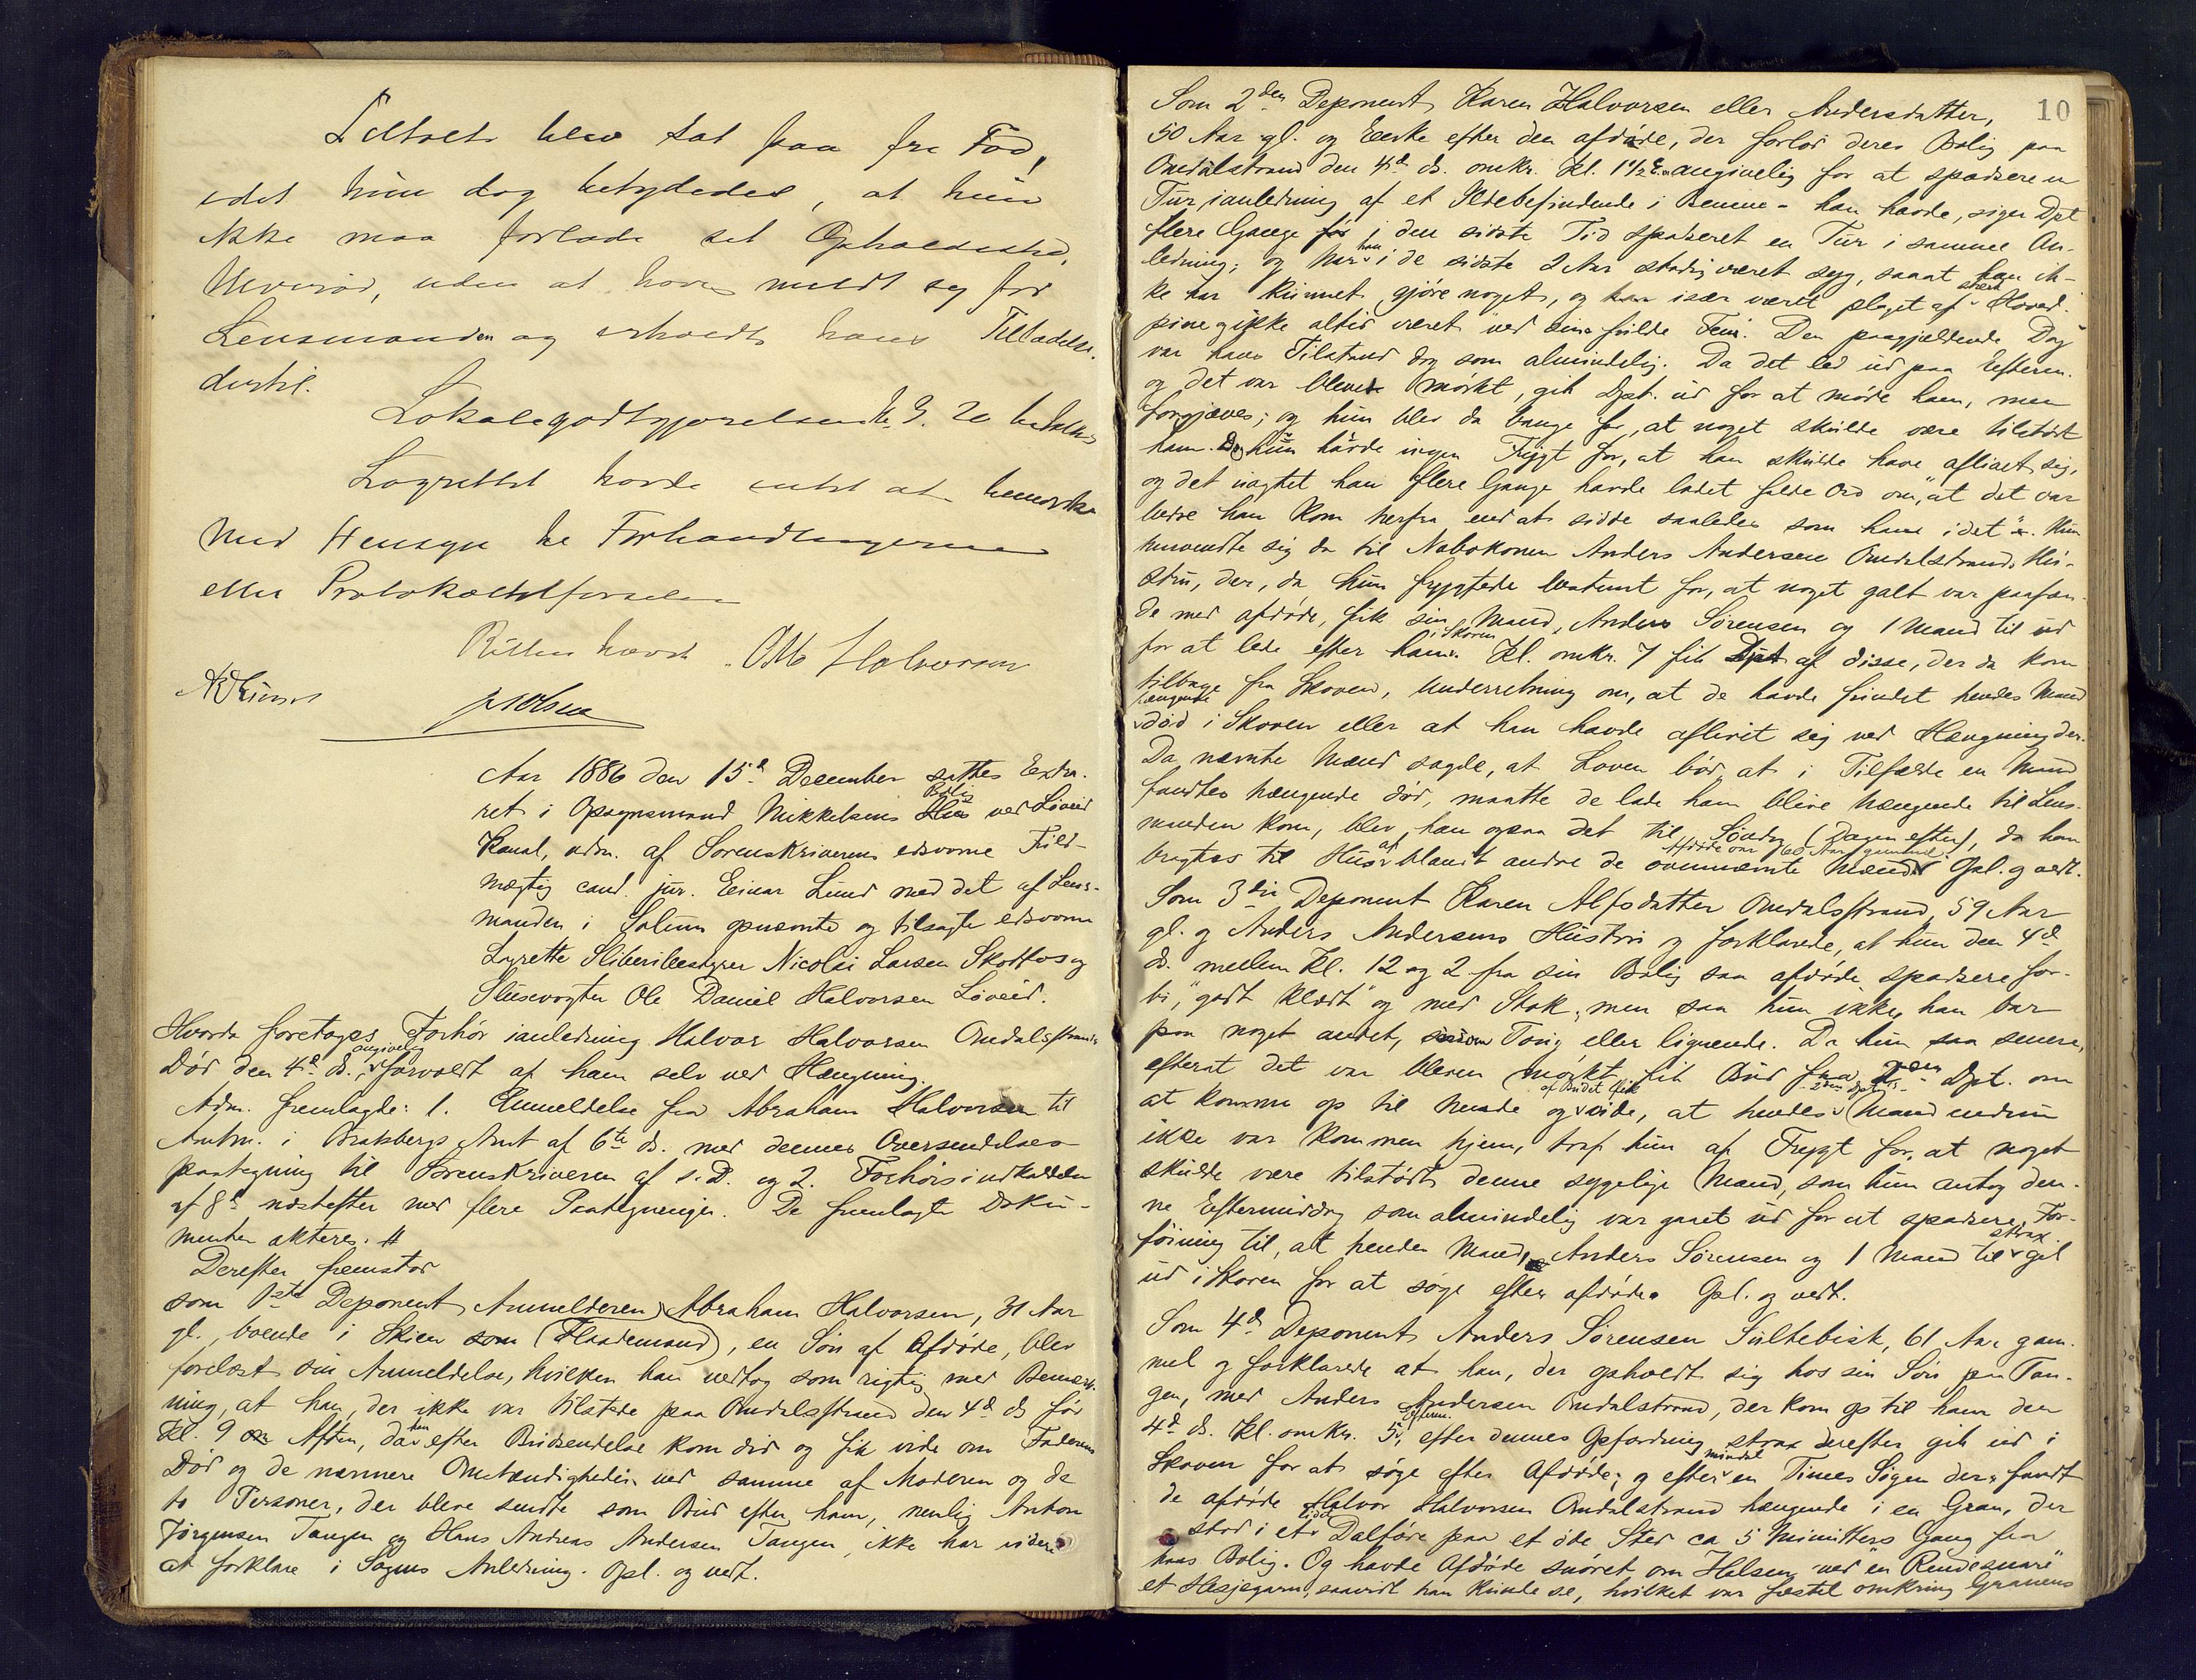 Tiltalte blev sat paa fri Fod,
idet hun dog betydedes, at hun
ikke maa forlade sit Opholdssted,
uden at have meldt sig for
Lensmanden og erholdt hans Tilladelse
dertil.
Lokalegodtgjørelsen Kr. 3.20 betaltes
Lagrettet havde intet at bemærke
med Hensyn til Forhandlingerne
eller Protokoltilførselen
Retten hævet. Ole Halvorsen
Aar 1886 den 15de December sattes Extra-
ret i Opsynsmand Mikkelsens Bolig ved Løveid
Kanal, adm. af Sorenskriverens edsvorne Fuld-
mægtig cand. jur. Einar Lund med det af Lens-
manden i Solum opnævnte og tilsagte edsvorne
Lagrette Sliberibestyrer Nicolai Larsen Skotfos og
Slusevogter Ole Daniel Halvorsen Løveid.
Hvorda foretages Forhør ianledning Halvor Halvorsen Omdalsstrands
Død den 4de ds., angivelig forvoldt af ham selv ved Hængning.
Adm. fremlagde: 1. Anmeldelse fra Abraham Halvorsen til
Amtm. i Bratsbergs Amt af 6te ds. med dennes Oversendelses-
paategning til Sorenskriveren af s. D. og 2. Forhørsindkaldelse
af 8de næstefter med flere Paategninger. De fremlagte Doku-
menter akteres. #
Derefter fremstod
som 1ste Deponent Anmelderen Abraham Halvorsen, 31 Aar
gl., boende i Skien som (Flaademand), en Søn af Afdøde, blev
forelæst sin Anmeldelse, hvilken han vedtog som rigtig med Bemærk-
ning, at han, der ikke var tilstede paa Omdalsstrand den 4de ds før
Kl. 9 Aften, da han efter Budsendelse kom did og fik vide om Faderens
Død og de nærmere Omstændigheder ved samme af Moderen og de
to Personer, der bleve sendte som Bud efter ham, nemlig Anton
Jørgensen Tangen og Hans Andreas Andersen Tangen, ikke har videre
at forklare i Sagens Anledning. Opl. og vedt.
10
Som 2den Deponent Karen Halvorsen eller Andersdatter,
50 Aar gl. og Enke efter den afdøde, der forlod deres Bolig paa
Omdalstrand den 4de ds. omkr. Kl. 1 1/2 Em angivelig for at spadsere en
Tur ianledning af et Ildebefindende i Benene - han havde, siger Dpt
flere Gange i den sidste Tid spadseret en Tur i samme An-
ledning; og har han i de sidste 2 Aar stadig været syg, saaat han ik-
ke har kunnet gjøre noget, og især været plaget af stærk Hoved-
pine og ikke altid været ved sin fulde Fem. Den paagjældende Dag
var hans Tilstand dog som almindelig. Da det led ud paa Efterm.
og det var blevet mørkt, gik Dpt. ud for at møde ham, men
forgjæves; og hun blev da bange for, at noget skulde være tilstødt
ham. Dog hun havde ingen Frygt for, at han skulde have aflivet sig,
og det uagtet han flere Gange havde ladet falde Ord om, "at det var
bedre han kom herfra end at sidde saaledes som han idet". Hun
henvendte sig da til Nabokonen Anders Andersen Omdalstrands Hu-
stru, der, da hun frygtede bestemt for, at noget galt var paafær-
de med afdøde, fik sin Mand, Anders Sørensen og 1 Mand til ud
for at lede efter ham i Skoven. Kl. omkr. 7 fik Dpt af disse, der da kom
tilbage fra Skoven, Underretning om, at de havde fundet hendes Mand
hængende død i Skoven eller at han havde aflivet sig ved Hængning der.
Da nævnte Mænd sagde, at Loven bød, at i Tilfælde en Mand
fandtes hængende død, maatte de lade ham blive hængende til Lens-
manden kom, blev han ogsaa det til Søndag (Dagen efter), da han
bragtes til Hus af blandt andre de ovennævnte Mænd. Afdøde var 60 Aar gammel. Opl. og vedt.
Som 3die Deponent Karen Alfsdatter Omdalsstrand, 59 Aar
gl. og Anders Andersens Hustru og forklarede, at hun den 4de
ds. mellem Kl. 12 og 2 fra sin Bolig saa afdøde spadsere for-
bi, "godt klædt" og med Stok, men saa hun ikke, han bar
paa noget andet, saasom Toug eller lignende. Da hun saa senere,
efterat det var bleven mørkt, fik Bud fra 2den Dpt. om
at komme op til hende og af Budet fik vide, at hendes 2den Dpts Mand endnu
ikke var kommen hjem, traf hun af Frygt for, at noget
skulde være tilstødt denne sygelige Mand, som hun antog den-
ne Eftermiddag som almindelig var gaaet ud for at spadsere, For-
føining til, at hendes Mand, Anders Sørensen og 1 Mand til strax gik
ud i Skoven for at søge efter afdøde. Opl. og vedt.
Som 4de Deponent Anders Sørensen 61 Aar gam-
mel og forklarede at han, der opholdt sig hos sin Søn paa Tan-
gen, med Anders Andersen Omdalstrand, der kom op til ham den
4de ds. Kl. omkr. 5 Efterm., efter dennes Opfordring strax derefter gik ud i
Skoven for at søge efter Afdøde; og efter mindst en Times Søgen der, fandt
de afdøde Halvor Halvorsen Omdalstrand hængende i en Gran, der
stod i et lidet Dalføre paa et øde Sted ca 5 Minutters Gang fra
hans Bolig. Og havde Afdøde snøret om Halsen ved "en Rendesnare"
et Hesjegarn, saavidt han kunde se, hvilket var fæstet omkring Granens